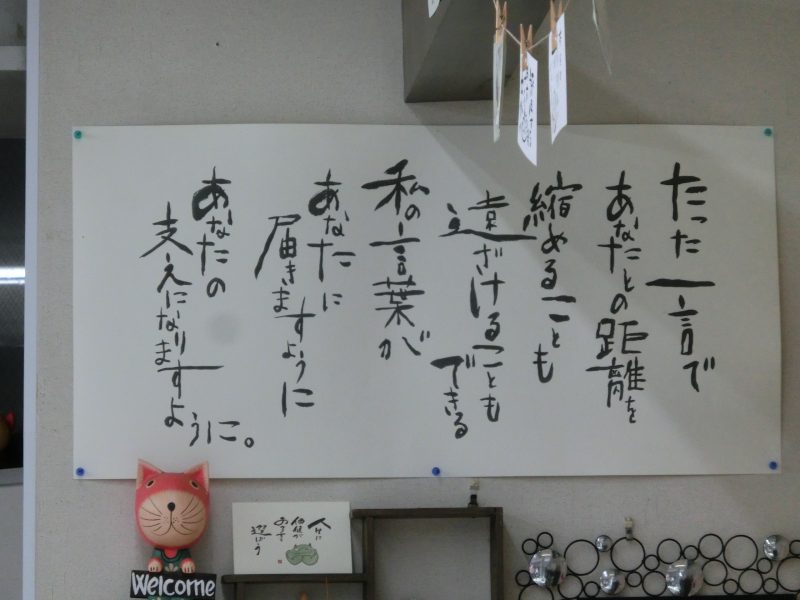 たった一言で
あなたとの距離を
縮めることも
遠ざけることもできる
私の言葉が
あなたに
届きますように
あなたの
支えになりますように。
Welcome